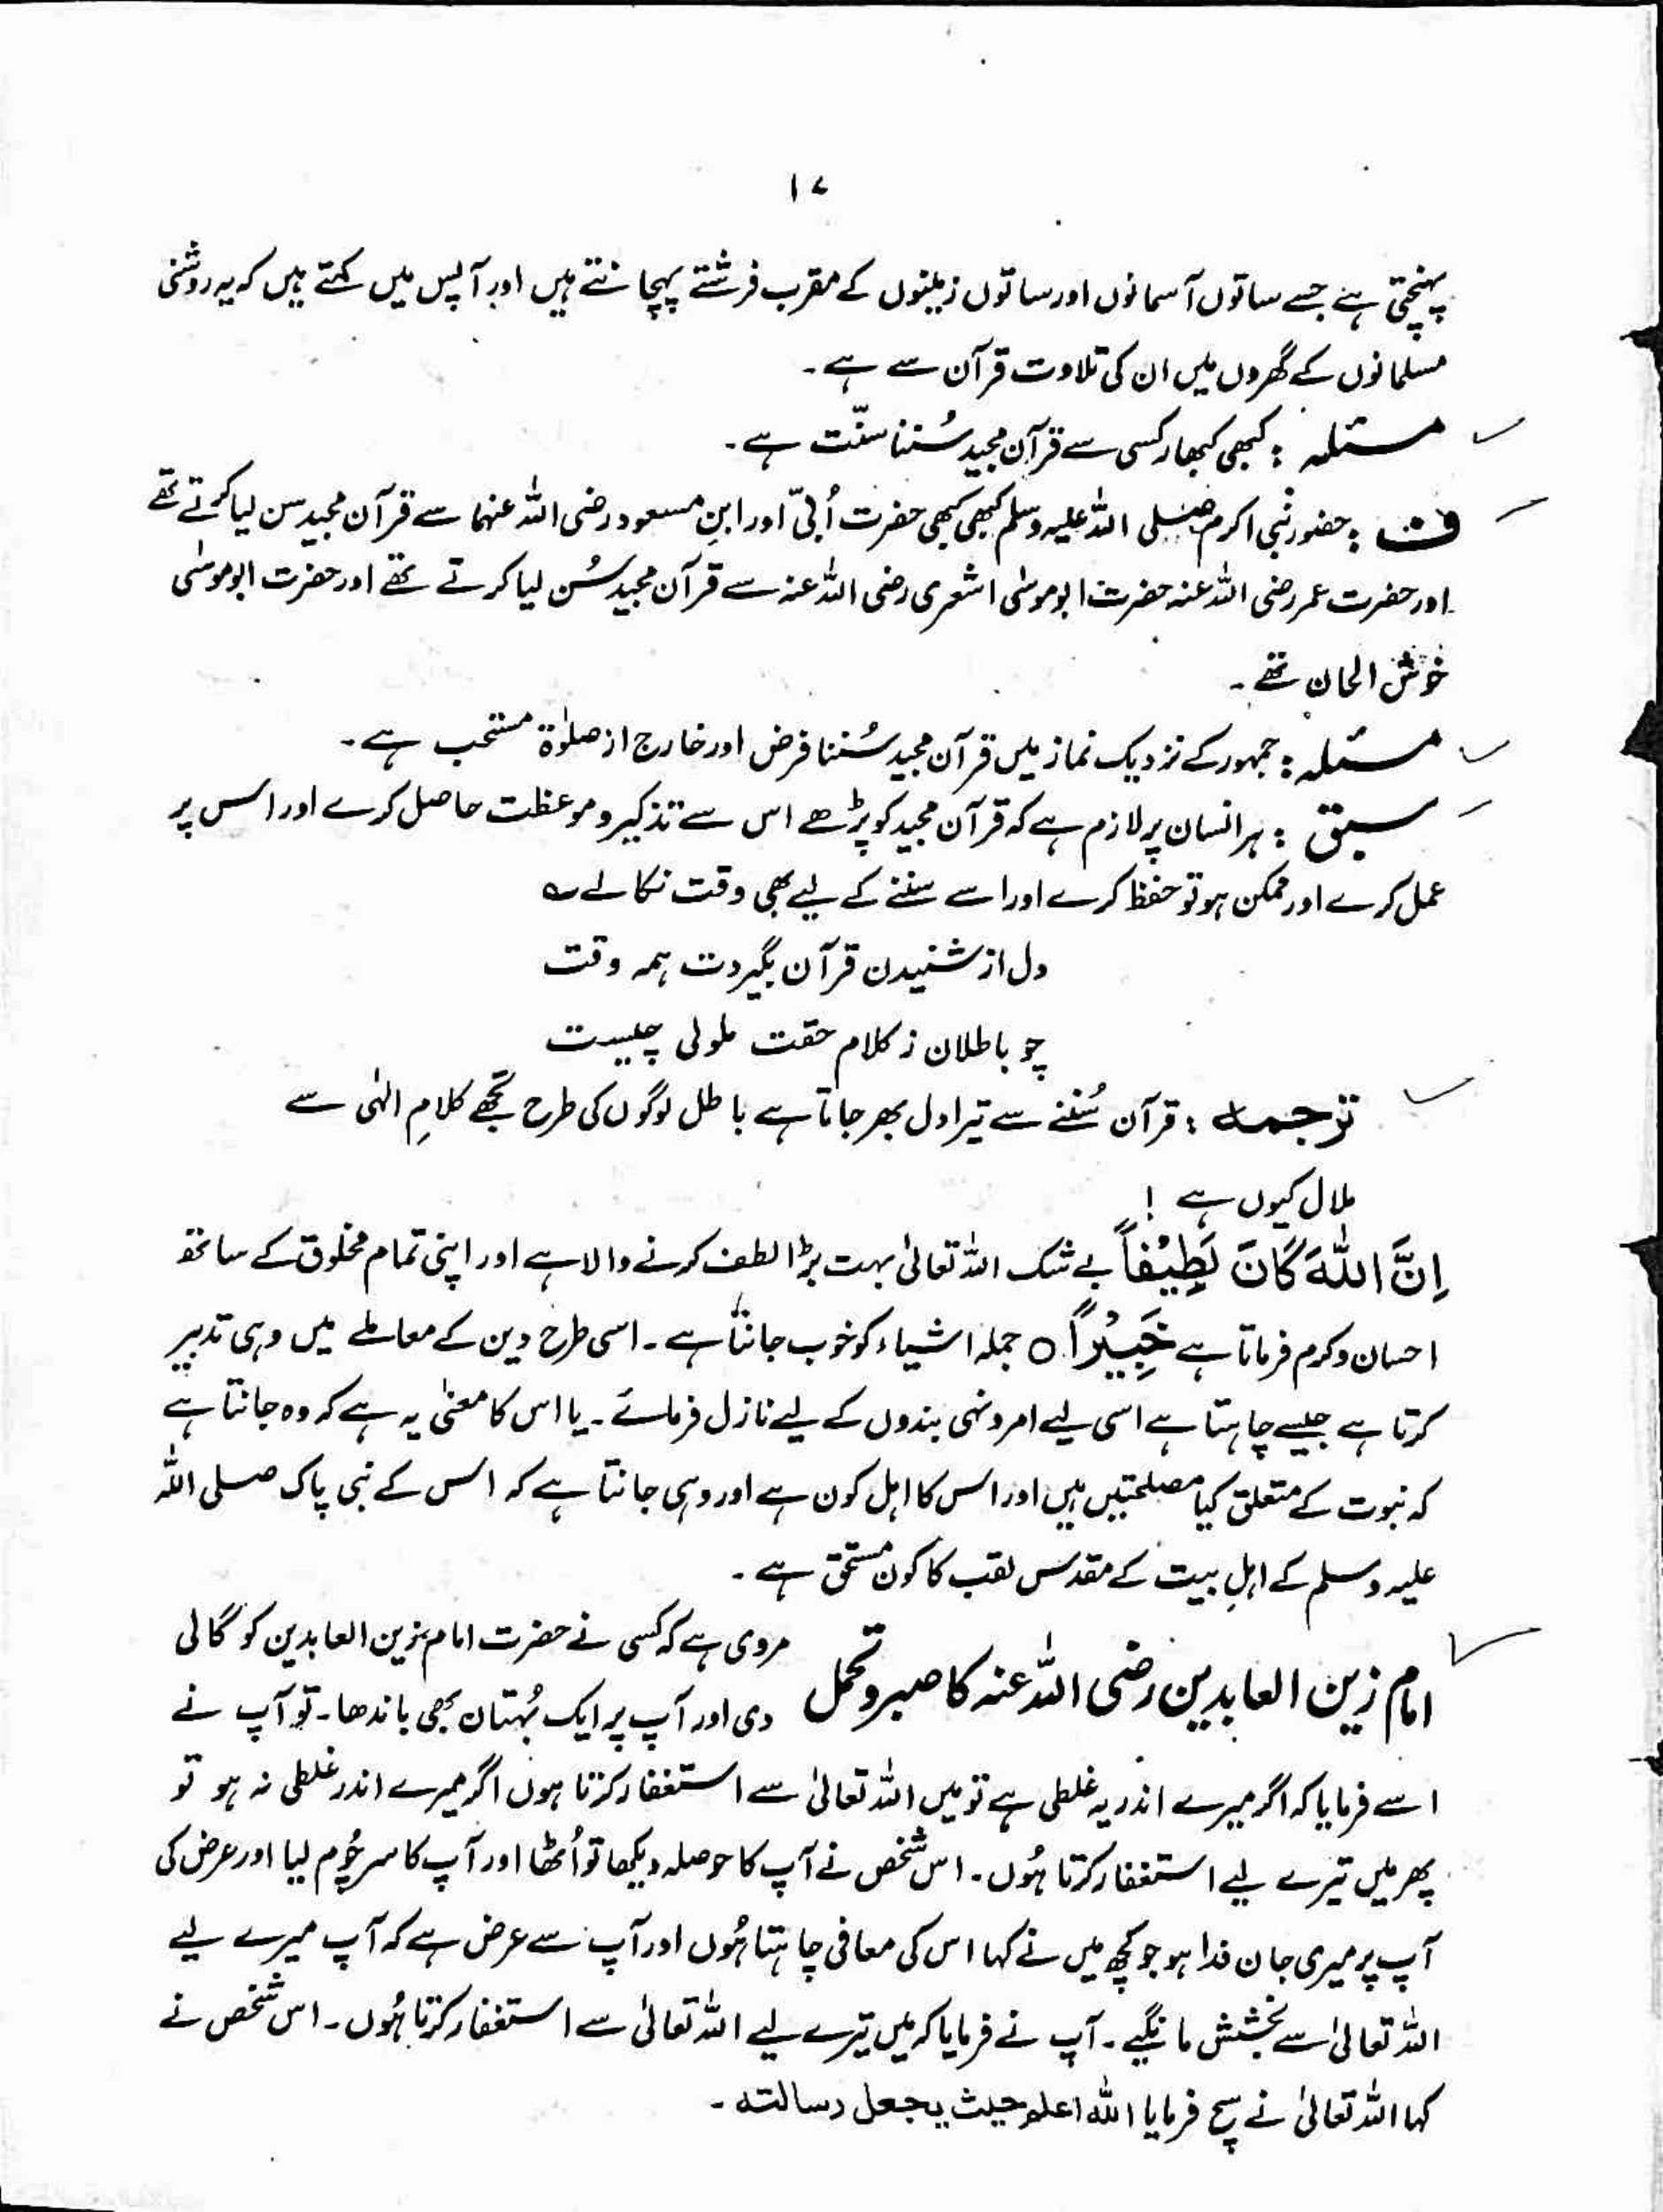 ۱۷
پہنچتی ہے جسے ساتوں آسمانوں اور ساتوں زمینوں کے مقرب فرشتے پہچانتے ہیں اور آپس میں کہتے ہیں کہ یہ روشنی
مسلمانوں کے گھروں میں ان کی تلاوت قرآن سے ہے۔
مسئلہ : کبھی کبھار کسی سے قرآن مجید سُننا سنّت ہے۔
ف : حضور نبی اکرم صلی اللہ علیہ وسلم کبھی کبھی حضرت اُبیّ اور ابنِ مسعود رضی اللہ عنہما سے قرآن مجید سن لیا کرتے تھے
اور حضرت عمر رضی اللہ عنہ حضرت ابوموسٰی اشعری رضی اللہ عنہ سے قرآن مجید سُن لیا کرتے تھے اور حضرت ابوموسٰی
خوش الحان تھے۔
مسئلہ : جمہور کے نزدیک نماز میں قرآن مجید سُننا فرض اور خارج از صلوٰۃ مستحب ہے۔
سبق : ہر انسان پر لازم ہے کہ قرآن مجید کو پڑھے اس سے تذکیر و موعظت حاصل کرے اور اس پر
عمل کرے اور ممکن ہو تو حفظ کرے اور اسے سننے کے لیے بھی وقت نکالے ؎
دل از شنیدن قرآن بگیردت ہمہ وقت
چو باطلان ز کلام حقت ملولی چیست
ترجمہ : قرآن سُننے سے تیرا دل بھر جاتا ہے باطل لوگوں کی طرح تجھے کلامِ الٰہی سے
ملال کیوں ہے !
اِنَّ اللّٰہَ کَانَ لَطِیْفاً بے شک اللہ تعالیٰ بہت بڑا لطف کرنے والا ہے اور اپنی تمام مخلوق کے ساتھ
احسان و کرم فرماتا ہے خَبِیْراً ○ جملہ اشیاء کو خوب جانتا ہے۔ اسی طرح دین کے معاملے میں وہی تدبیر
کرتا ہے جیسے چاہتا ہے اسی لیے امر و نہی بندوں کے لیے نازل فرمائے۔ یا اس کا معنٰی یہ ہے کہ وہ جانتا ہے
کہ نبوت کے متعلق کیا مصلحتیں ہیں اور اس کا اہل کون ہے اور وہی جانتا ہے کہ اس کے نبی پاک صلی اللہ
علیہ وسلم کے اہلِ بیت کے مقدس لقب کا کون مستحق ہے۔
امام زین العابدین رضی اللہ عنہ کا صبر و تحمل
مروی ہے کہ کسی نے حضرت امام زین العابدین کو گالی
دی اور آپ پر ایک بُہتان بھی باندھا۔ تو آپ نے
اسے فرمایا کہ اگر میرے اندر یہ غلطی ہے تو میں اللہ تعالیٰ سے استغفار کرتا ہوں اگر میرے اندر غلطی نہ ہو تو
پھر میں تیرے لیے استغفار کرتا ہُوں۔ اس شخص نے آپ کا حوصلہ دیکھا تو اُٹھا اور آپ کا سر چُوم لیا اور عرض کی
آپ پر میری جان فدا ہو جو کچھ میں نے کہا اس کی معافی چاہتا ہُوں اور آپ سے عرض ہے کہ آپ میرے لیے
اللہ تعالیٰ سے بخشش مانگیے۔ آپ نے فرمایا کہ میں تیرے لیے اللہ تعالیٰ سے استغفار کرتا ہُوں۔ اس شخص نے
کہا اللہ تعالیٰ نے سچ فرمایا اللہ اعلم حیث یجعل رسالتہ۔